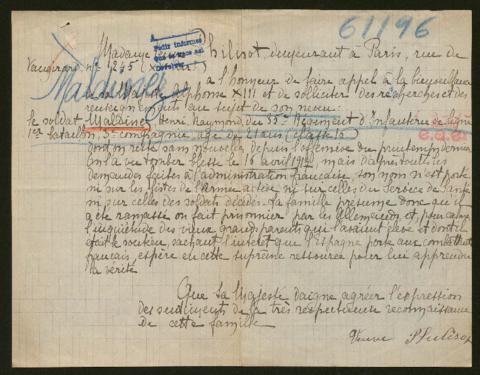 61196
Pedir informes
Madame
demeurant à Paris, rue de
Vaugirard nº 245
a l'honneur de faire appel à la
Alphonse XIII et de solliciter des recherches et des
renseignements au sujet de son neveu:
le soldat Malaines Henri Raymond, du 33e Régiment d'Infanterie de ligne
1er bataillon, 3e compagnie, âgé de 21 ans (classe
dont on reste sans nouvelles depuis l'offensive du printemps dernier
On l'a vu tomber blessé le 16 avril mais d'après toutes les
demandes faites à l'administration française, son nom n'est porté
ni sur les listes de l'armée active, ni sur celles du service de santé
ni sur celles des soldats décédés. La famille présume donc qu'il
a été ramassé ou fait prisonnier par les Allemands et, pour calmer
l'inquiétude des vieux grands parents qui l'avaient élevé et dont il
était le soutien, sachant l'intérêt que l'Espagne porte aux combattants
français, espère en cette suprême ressource pour lui apprendre
la vérité
Que Sa Majesté daigne agréer l'expression
des sentiments de la très respectueuse reconnaissance
de cette famille
Veuve